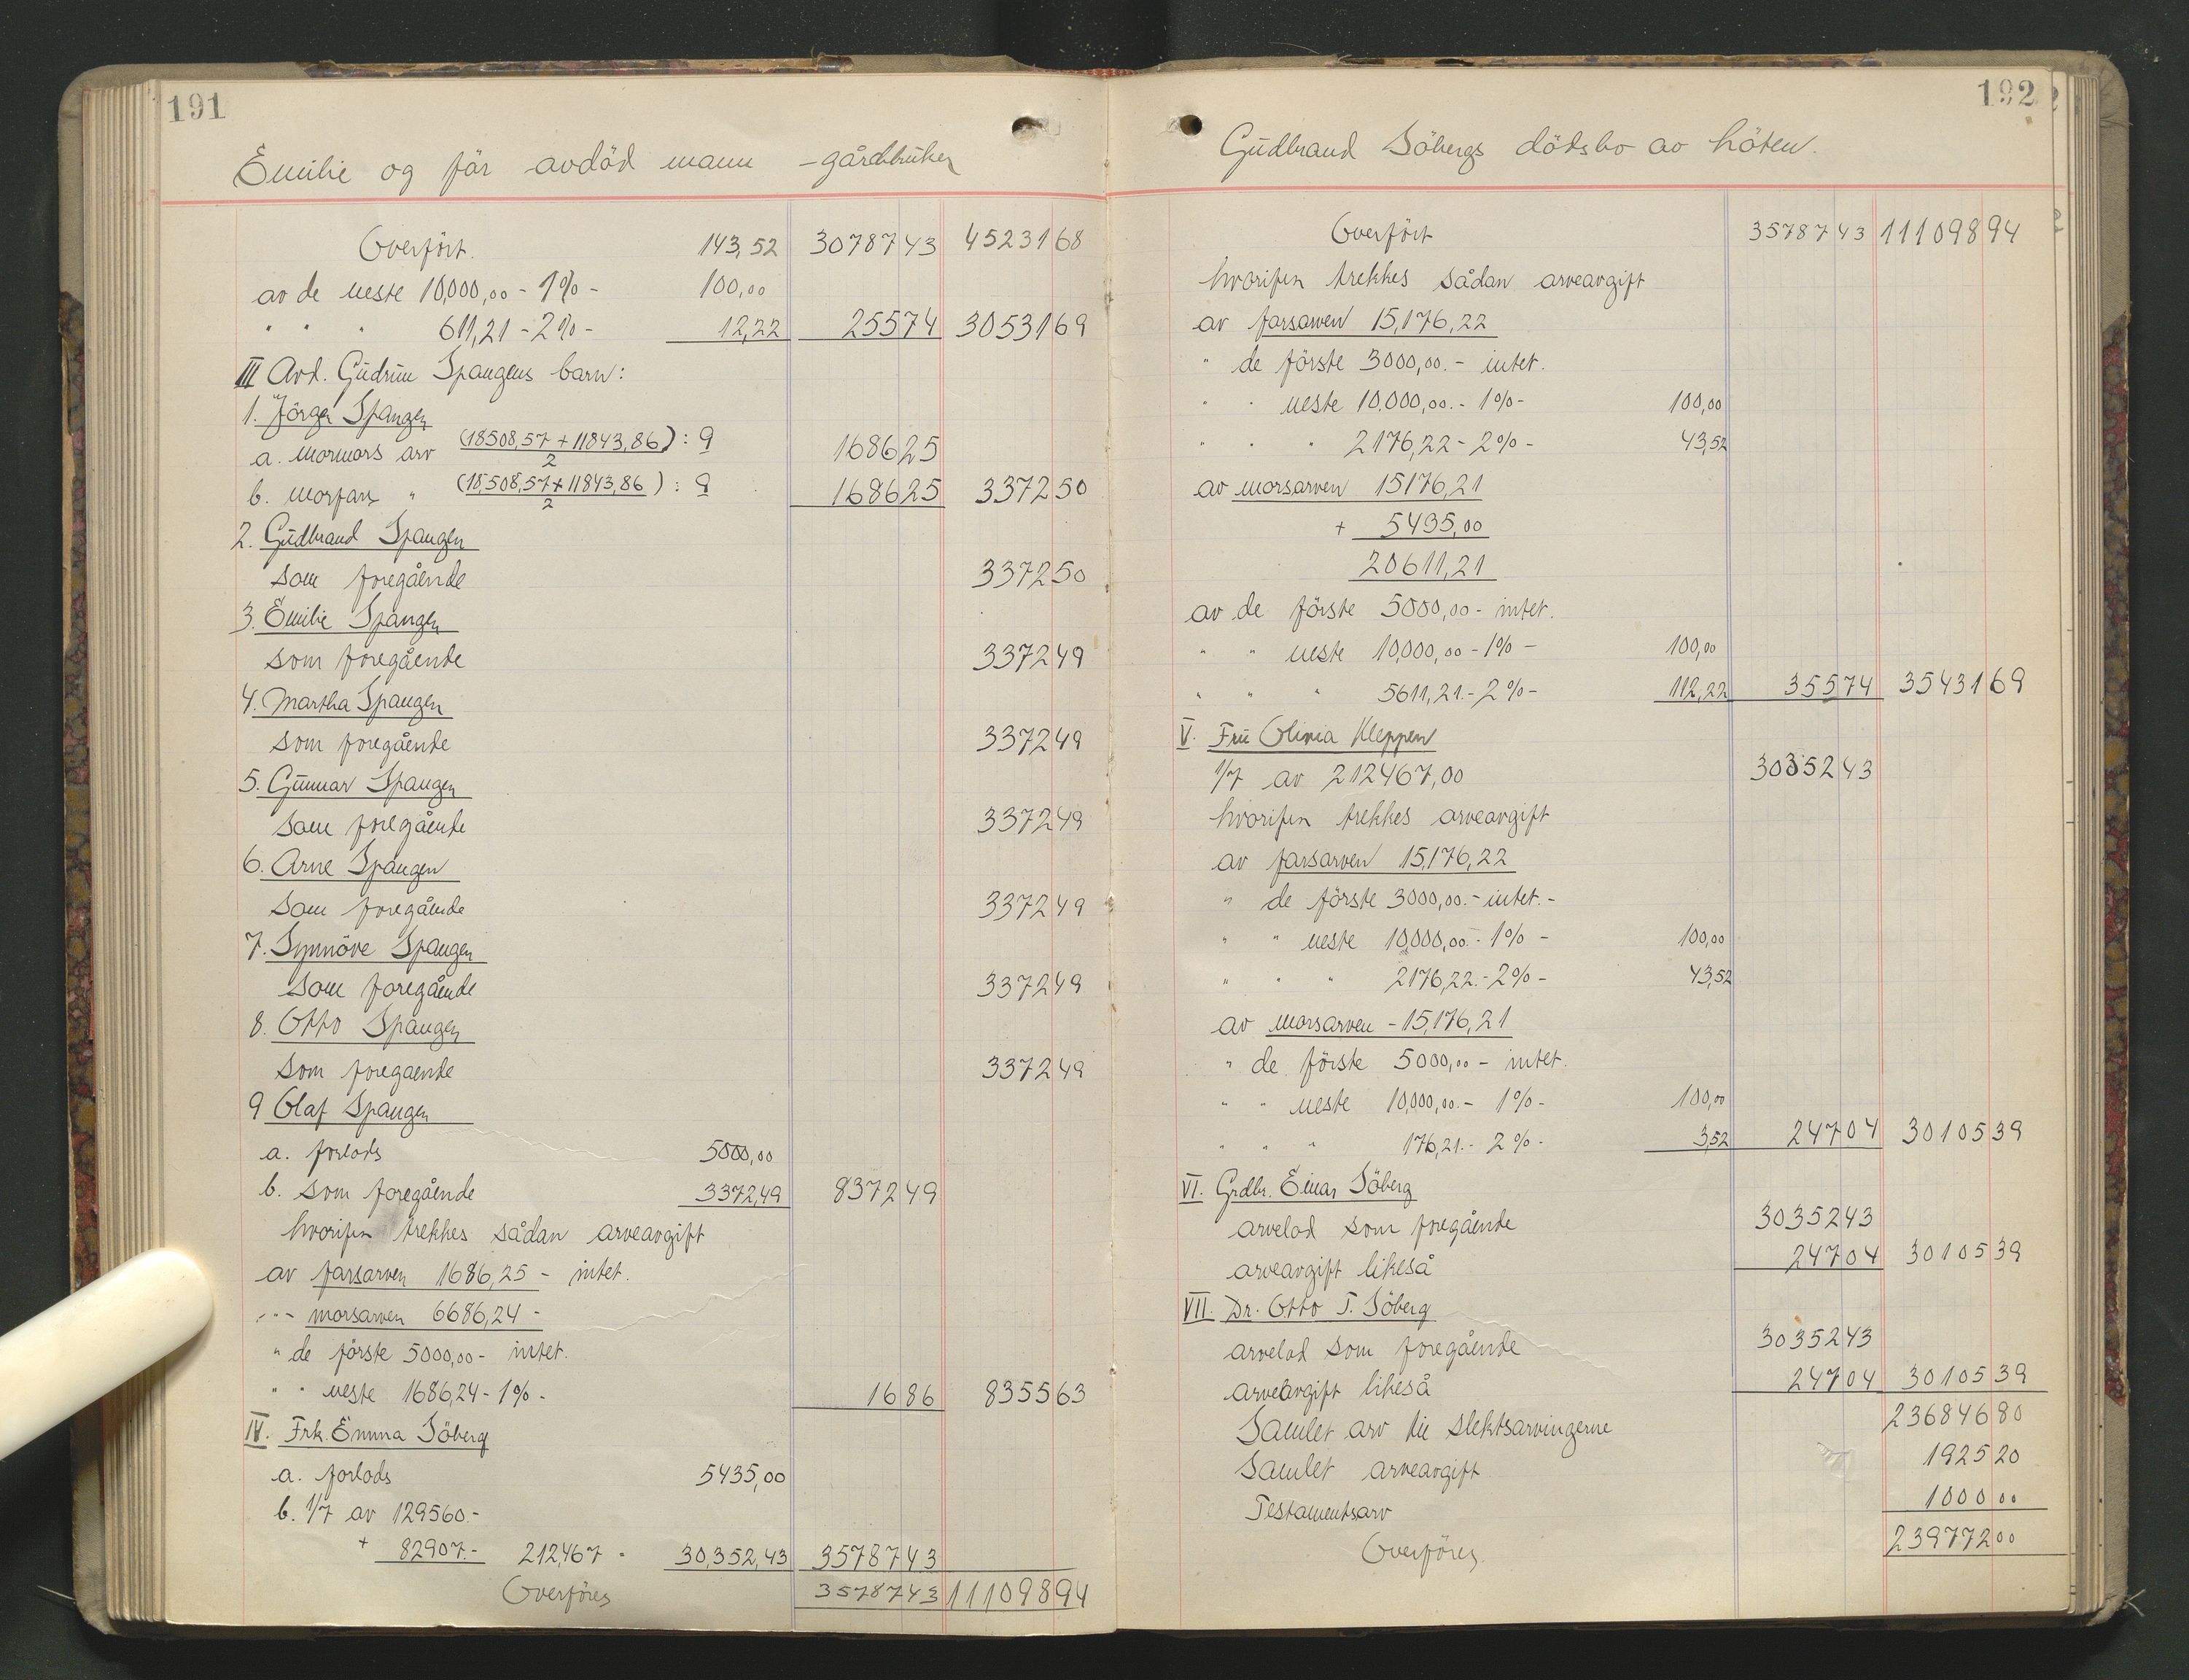 191
Emilie og før avdød mann - gårdbruker
Overført. 143,52 30787 43 45231 68
av de neste 10,000,00 - 1% - 100,00
" " " 611,21 - 2% - 12,22 255 74 30531 69
III Avd. Gudrun Spangens barn:
1. Jörgen Spangen
a. mormors arv (18508,57 + 11843,86) : 9 1686 25
2
b. morfars " (18,508,57 + 11843,86) : 9 1686 25 3372 50
2
2. Gudbrand Spangen
som foregående 3372 50
3. Emilie Spangen
som foregående 3372 49
4. Martha Spangen
som foregående 3372 49
5. Gunnar Spangen
som foregående 3372 49
6. Arne Spangen
som foregående 3372 49
7. Synnöve Spangen
som foregående 3372 49
8. Otto Spangen
som foregaende 3372 49
9 Olaf Spangen
a. forlods 5000,00
b. som foregående 3372,49 8372 49
hvorifra trekkes sådan arveavgift
av farsarven 1686,25 - intet.
" - morsarven 6686,24 -
" de förste 5000,00 - intet.
" " neste 1686,24 - 1% - 16 86 8355 63
IV. Frk. Emma Söberg
a. forlods 5435,00
b. 1/7 av 129560.-
+ 82907.- 212,467 - 30,352,43 35787 43
Overføres 35787 43 111098 94
192
Gudbrand Söbergs dödsbo av Röten.
Overført 35787 43 111098 94
hvorifra trekkes sådan arveavgift
av farsarven 15,176,22
" de förste 3000,00.- intet.
" " neste 10.000,00.- 1% - 100,00
" " " 2176,22 - 2% - 43,52
av morsarven 15176,21
+ 5435,00
20611,21
av de förste 5000,00 - intet.
" " neste 10,000,00 - 1% - 100,00
" " " 5611,21.- 2% - 112,22 355 74 35431 69
V. Fru Olivia Kleppen
1/7 av 212467,00 30352 43
hvorifra trekkes arveavgift
av farsarven 15,176,22
" de förste 3000,00.- intet.-
" " neste 10,000,00.- 1% - 100,00
" " " 2176,22.- 2% - 43,52
av morsarven - 15,176,21
" de förste 5000,00 - intet.
" " neste 10,000,00.- 1% - 100,00
" " " 176,21.- 2% - 3,52 247 04 30105 39
VI. Grdbr. Einar Söberg
arvelod som foregående 30352 43
arveavgift likeså 247 04 30105 39
VII. Dr. Otto T. Söberg
arvelod som foregående 30352 43
arveavgift likeså 247 04 30105 39
Samlet arv til slektsarvingerne 236846 80
Samlet arveavgift 1925 20
Testamentsarv 1000 00
Overføres. 239772 00